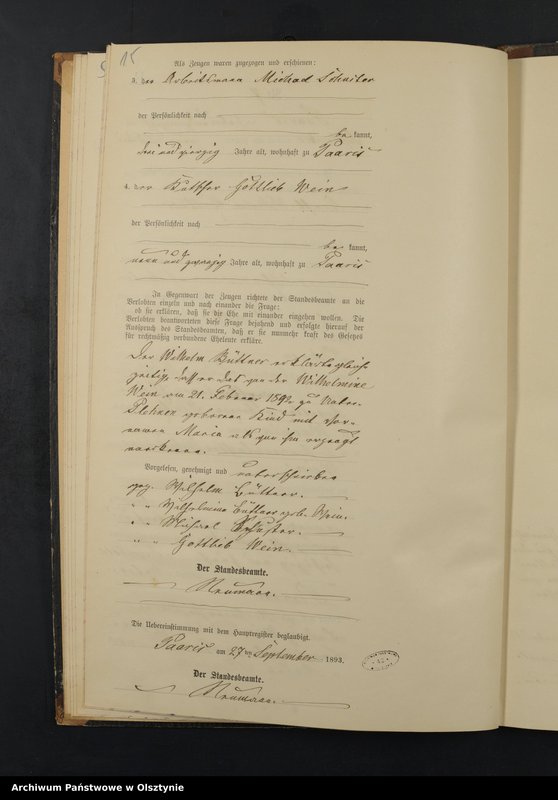 15
Als Zeugen waren zugezogen und erschienen:
3. der Arbeitsmann Michael Schuster
der Persönlichkeit nach
be kannt,
drei und vierzig Jahre alt, wohnhaft zu Paaris
4. der Kutscher Gottlieb Wein
der Persönlichkeit nach
be kannt,
neun und zwanzig Jahre alt, wohnhaft zu Paaris
In Gegenwart der Zeugen richtete der Standesbeamte an die
Verlobten einzeln und nach einander die Frage:
ob sie erklären, daß sie die Ehe mit einander eingehen wollen. Die
Verlobten beantworteten diese Frage bejahend und erfolgte hierauf der
Ausspruch des Standesbeamten, daß er sie nunmehr kraft des Gesetzes
für rechtmäßig verbundene Eheleute erkläre.
Der Wilhelm Büttner erklärte gleich-
zeitig, daß er das von der Wilhelmine
Wein am 21. Februar 189 zu
Plehnen geborene Kind mit Vor-
namen Maria als von ihm erzeugt
anerkenne.
Vorgelesen, genehmigt und unterschrieben
gez. Wilhelm Büttner.
" " Wilhelmine Büttner geb. Wein.
" " Michael Schuster.
" " Gottlieb Wein.
Der Standesbeamte.
Neumann.
Die Uebereinstimmung mit dem Hauptregister beglaubigt.
Paaris am 27ten September 1893.
Der Standesbeamte.
Neumann.
Archiwum Państwowe w Olsztynie